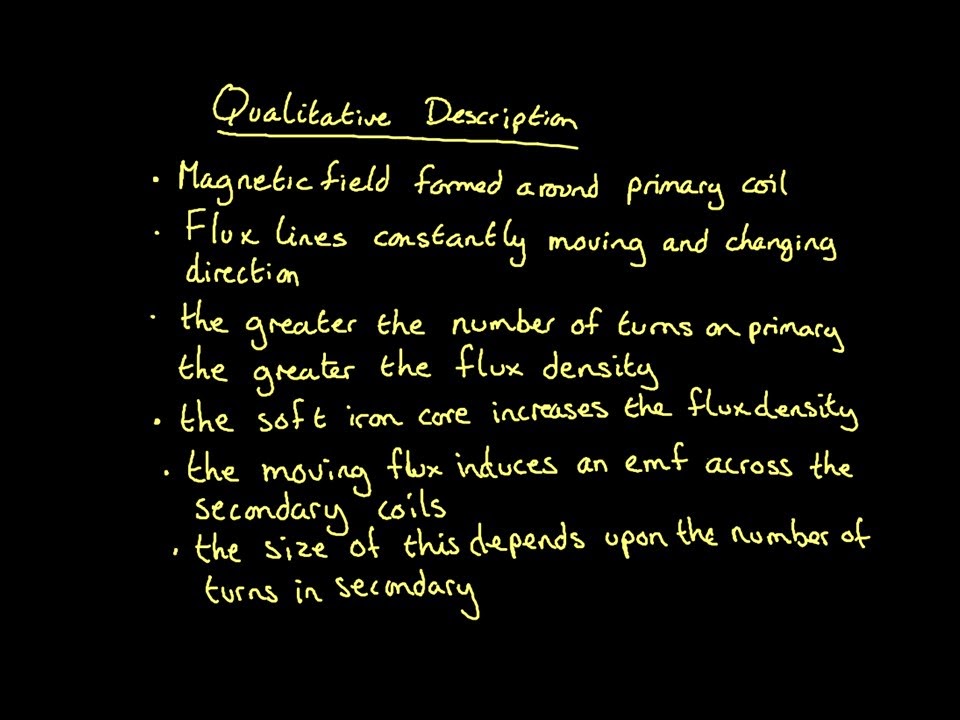 Qualitative Description
• Magnetic field formed around primary coil
• Flux lines constantly moving and changing
direction
• the greater the number of turns on primary
the greater the flux density
• the soft iron core increases the flux density
• the moving flux induces an emf across the
secondary coils
• the size of this depends upon the number of
turns in secondary